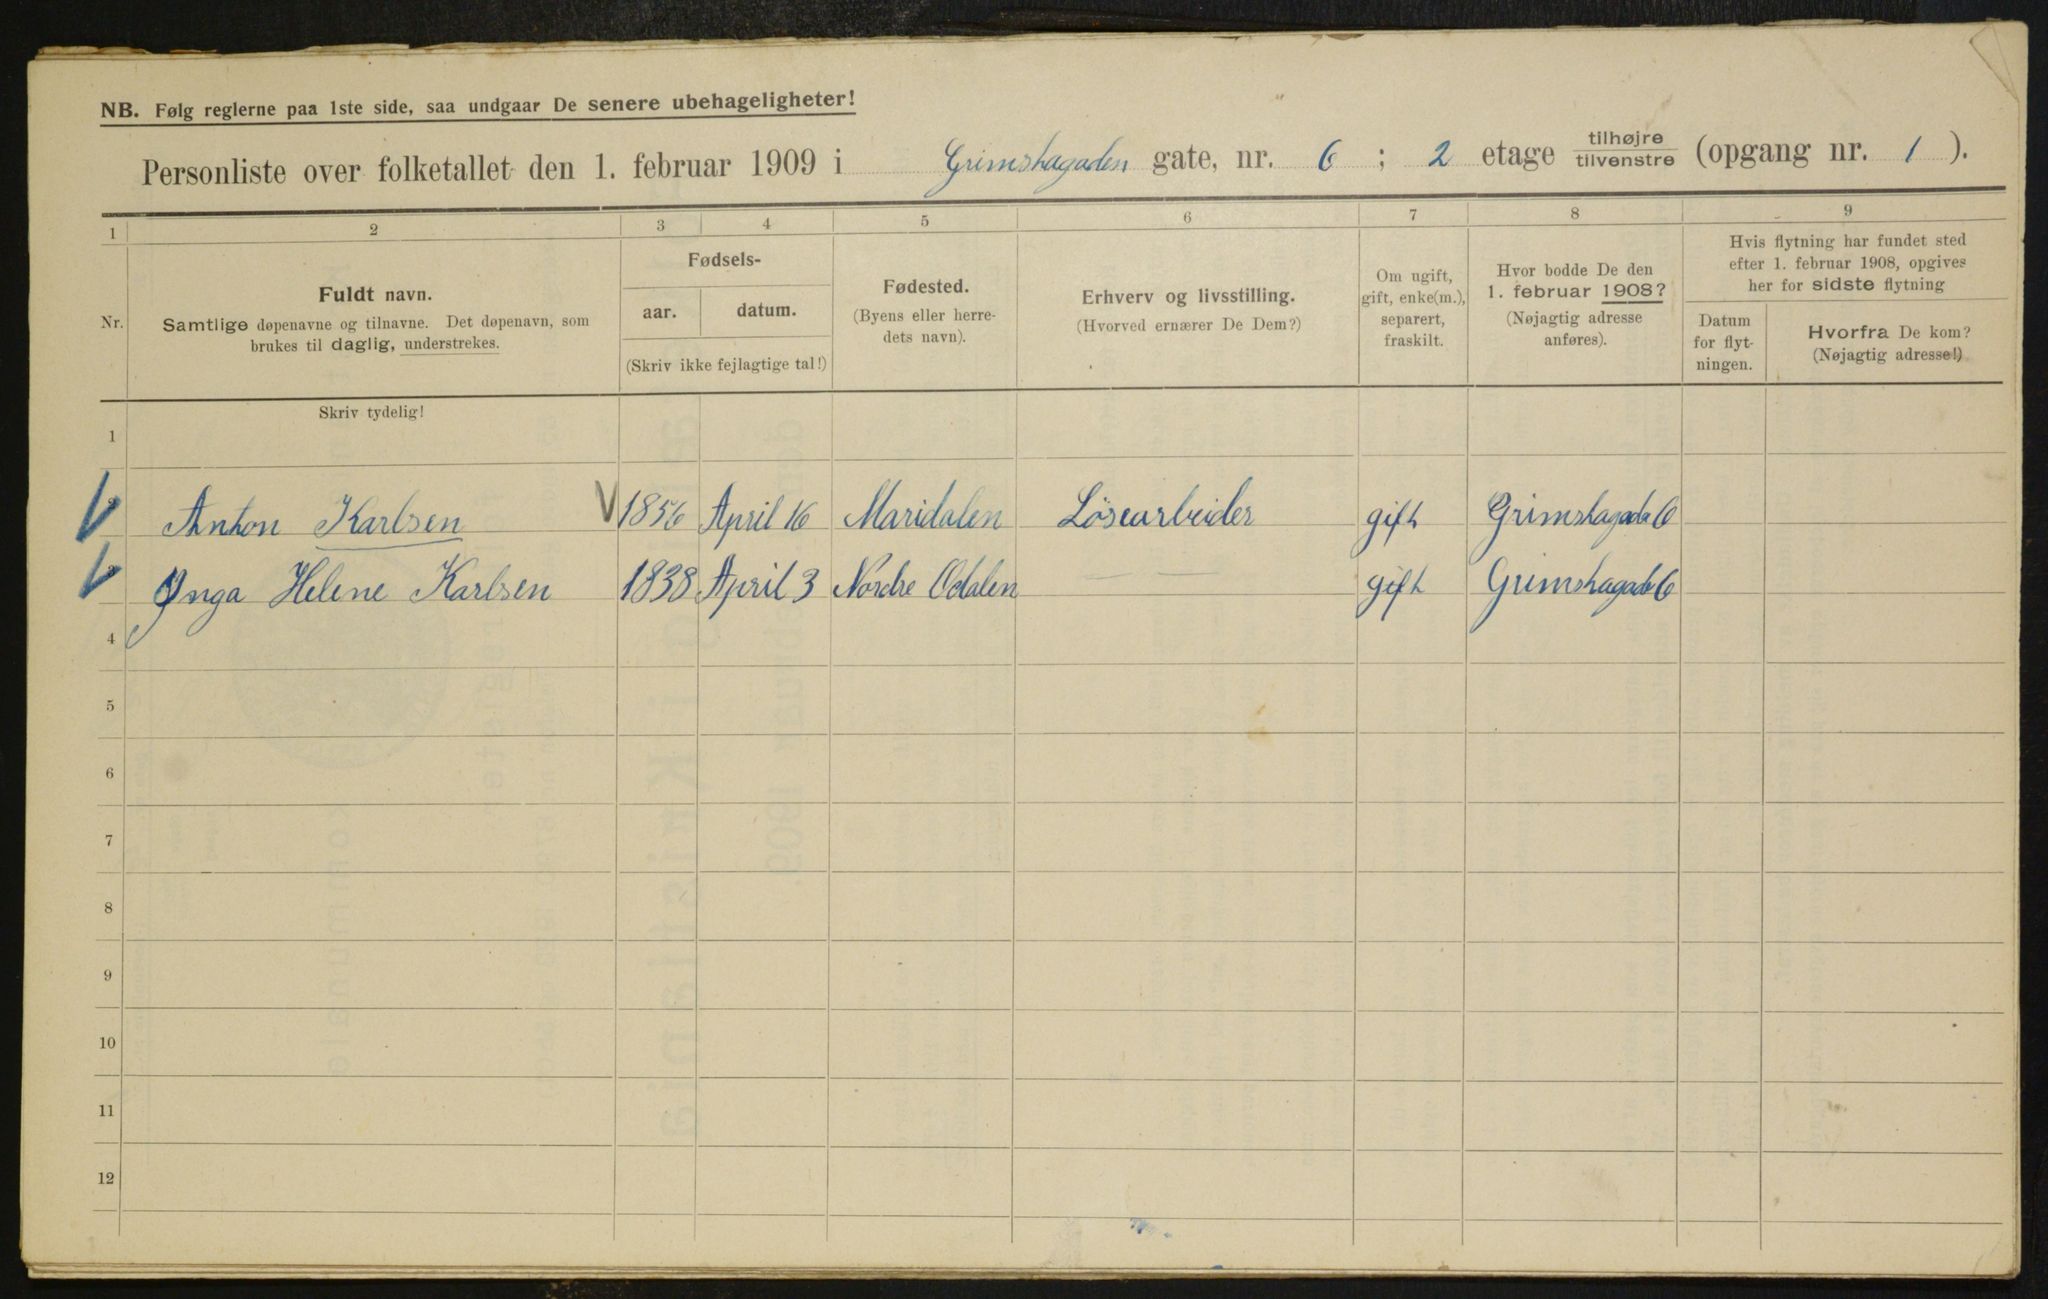 NB. Følg reglerne paa 1ste side, saa undgaar De senere ubehageligheter!
Personliste over folketallet den 1. februar 1909 i Grimshagaden gate, nr. 6 ; 2 etage tilhøjre tilvenstre (opgang nr. 1 ).
1 2 3 4 5 6 7 8 9
Nr.
Fuldt navn.
Samtlige døpenavne og tilnavne. Det døpenavn, som
brukes til daglig, understrekes.
Fødsels-
aar. datum.
(Skriv ikke fejlagtige tal!)
Fødested.
(Byens eller herre-
dets navn).
Erhverv og livsstilling.
(Hvorved ernærer De Dem?)
Om ugift,
gift, enke(m.),
separert,
fraskilt.
Hvor bodde De den
1. februar 1908?
(Nøjagtig adresse
anføres).
Hvis flytning har fundet sted
efter 1. februar 1908, opgives
her for sidste flytning
Datum
for flyt-
ningen.
Hvorfra De kom?
(Nøjagtig adresse!)
Skriv tydelig!
1
2 Anton Karlsen 1856 April 16 Maridalen Lösearbeider gift Grimshagade 6
3 Inga Helene Karlsen 1838 April 3 Nordre Odalen — — gift Grimshagade 6
4
5
6
7
8
9
10
11
12